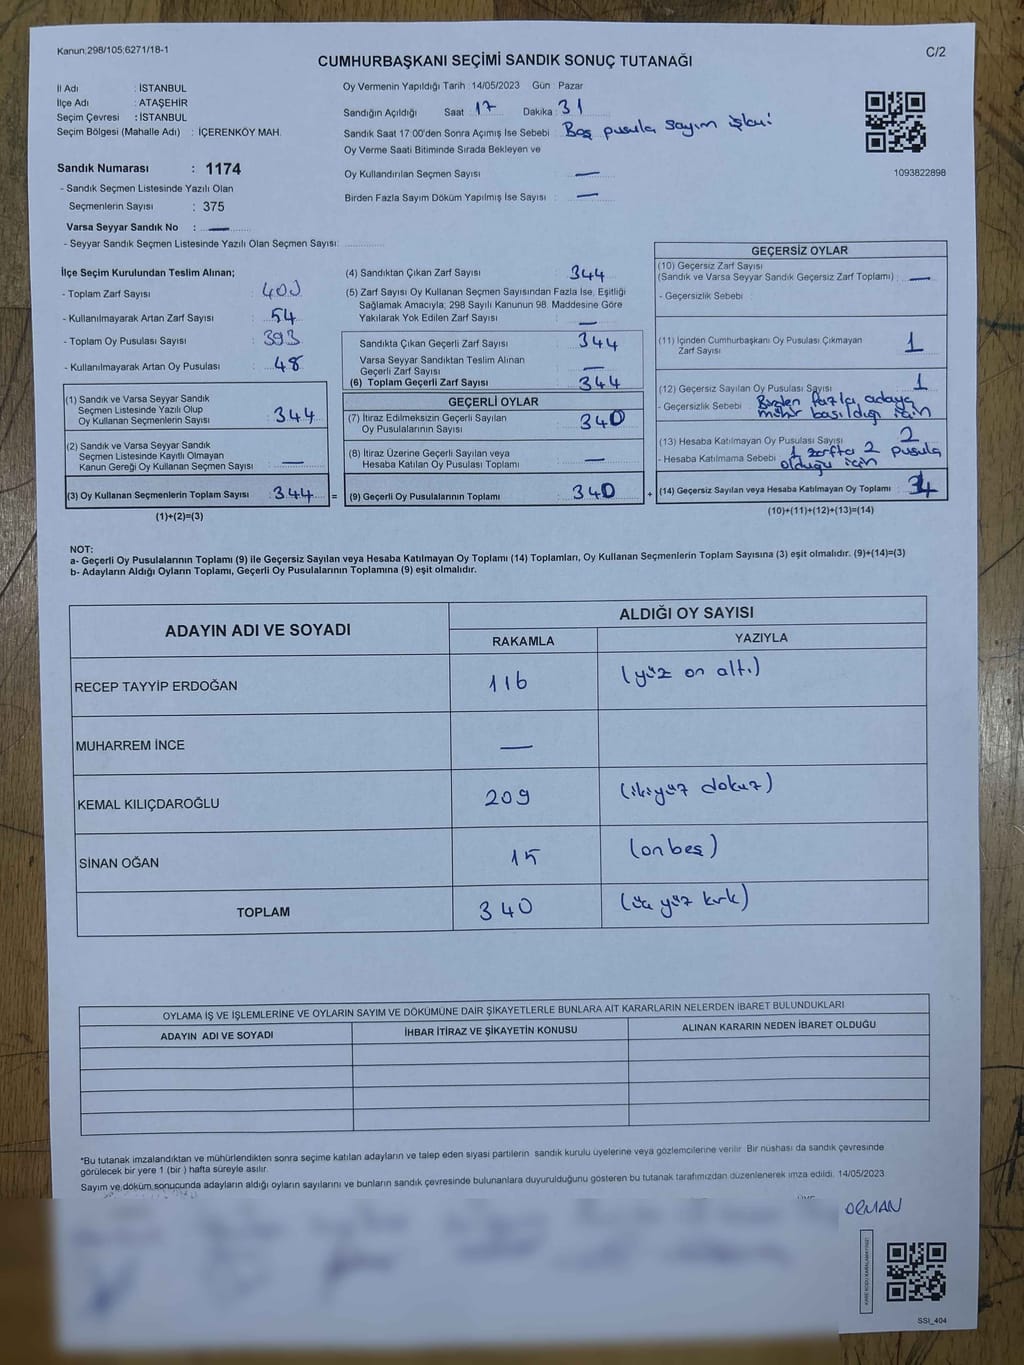 Kanun;298/105;6271/18-1
C/2
CUMHURBAŞKANI SEÇİMİ SANDIK SONUÇ TUTANAĞI
İl Adı : İSTANBUL
İlçe Adı : ATAŞEHİR
Seçim Çevresi : İSTANBUL
Seçim Bölgesi (Mahalle Adı) : İÇERENKÖY MAH.
Sandık Numarası : 1174
- Sandık Seçmen Listesinde Yazılı Olan
Seçmenlerin Sayısı : 375
Varsa Seyyar Sandık No : —
- Seyyar Sandık Seçmen Listesinde Yazılı Olan Seçmen Sayısı:
Oy Vermenin Yapıldığı Tarih :14/05/2023 Gün : Pazar
Sandığın Açıldığı Saat 17 Dakika : 31
Sandık Saat 17:00'den Sonra Açımış İse Sebebi : Boş pusula sayım işlemi
Oy Verme Saati Bitiminde Sırada Bekleyen ve
Oy Kullandırılan Seçmen Sayısı —
Birden Fazla Sayım Döküm Yapılmış İse Sayısı : —
1093822898
İlçe Seçim Kurulundan Teslim Alınan;
- Toplam Zarf Sayısı :
- Kullanılmayarak Artan Zarf Sayısı : 54
- Toplam Oy Pusulası Sayısı : 393
- Kullanılmayarak Artan Oy Pusulası : 48
(1) Sandık ve Varsa Seyyar Sandık
Seçmen Listesinde Yazılı Olup
Oy Kullanan Seçmenlerin Sayısı : 344
(2) Sandık ve Varsa Seyyar Sandık
Seçmen Listesinde Kayıtlı Olmayan
Kanun Gereği Oy Kullanan Seçmen Sayısı : —
(3) Oy Kullanan Seçmenlerin Toplam Sayısı : 344
(1)+(2)=(3)
(4) Sandıktan Çıkan Zarf Sayısı 344
(5) Zarf Sayısı Oy Kullanan Seçmen Sayısından Fazla İse, Eşitliği
Sağlamak Amacıyla; 298 Sayılı Kanunun 98. Maddesine Göre
Yakılarak Yok Edilen Zarf Sayısı : —
Sandıkta Çıkan Geçerli Zarf Sayısı : 344
Varsa Seyyar Sandıktan Teslim Alınan
Geçerli Zarf Sayısı : —
(6) Toplam Geçerli Zarf Sayısı : 344
GEÇERLİ OYLAR
(7) İtiraz Edilmeksizin Geçerli Sayılan
Oy Pusulalarının Sayısı : 340
(8) İtiraz Üzerine Geçerli Sayılan veya
Hesaba Katılan Oy Pusulası Toplamı : —
= (9) Geçerli Oy Pusulalarının Toplamı : 340 +
GEÇERSİZ OYLAR
(10) Geçersiz Zarf Sayısı
(Sandık ve Varsa Seyyar Sandık Geçersiz Zarf Toplamı) : —
- Geçersizlik Sebebi :
(11) İçinden Cumhurbaşkanı Oy Pusulası Çıkmayan
Zarf Sayısı : 1
(12) Geçersiz Sayılan Oy Pusulası Sayısı : 1
- Geçersizlik Sebebi : Birden fazla adaya
mühür basıldığı için
(13) Hesaba Katılmayan Oy Pusulası Sayısı : 2
- Hesaba Katılmama Sebebi : 1 zarfta 2 pusula
olduğu için
(14) Geçersiz Sayılan veya Hesaba Katılmayan Oy Toplamı : 4
(10)+(11)+(12)+(13)=(14)
NOT:
a- Geçerli Oy Pusulalarının Toplamı (9) ile Geçersiz Sayılan veya Hesaba Katılmayan Oy Toplamı (14) Toplamları, Oy Kullanan Seçmenlerin Toplam Sayısına (3) eşit olmalıdır. (9)+(14)=(3)
b- Adayların Aldığı Oyların Toplamı, Geçerli Oy Pusulalarının Toplamına (9) eşit olmalıdır.
ADAYIN ADI VE SOYADI
ALDIĞI OY SAYISI
RAKAMLA YAZIYLA
RECEP TAYYİP ERDOĞAN 116 (yüz on altı)
MUHARREM İNCE —
KEMAL KILIÇDAROĞLU 209 (ikiyüz dokuz)
SİNAN OĞAN 15 (onbeş)
TOPLAM 340 (üç yüz kırk)
OYLAMA İŞ VE İŞLEMLERİNE VE OYLARIN SAYIM VE DÖKÜMÜNE DAİR ŞİKAYETLERLE BUNLARA AİT KARARLARIN NELERDEN İBARET BULUNDUKLARI
ADAYIN ADI VE SOYADI İHBAR İTİRAZ VE ŞİKAYETİN KONUSU ALINAN KARARIN NEDEN İBARET OLDUĞU
*Bu tutanak imzalandıktan ve mühürlendikten sonra seçime katılan adayların ve talep eden siyasi partilerin sandık kurulu üyelerine veya gözlemcilerine verilir. Bir nüshası da sandık çevresinde
görülecek bir yere 1 (bir ) hafta süreyle asılır.
Sayım ve döküm sonucunda adayların aldığı oyların sayılarını ve bunların sandık çevresinde bulunanlara duyurulduğunu gösteren bu tutanak tarafımızdan düzenlenerek imza edildi. 14/05/2023
ORMAN
SSI_404